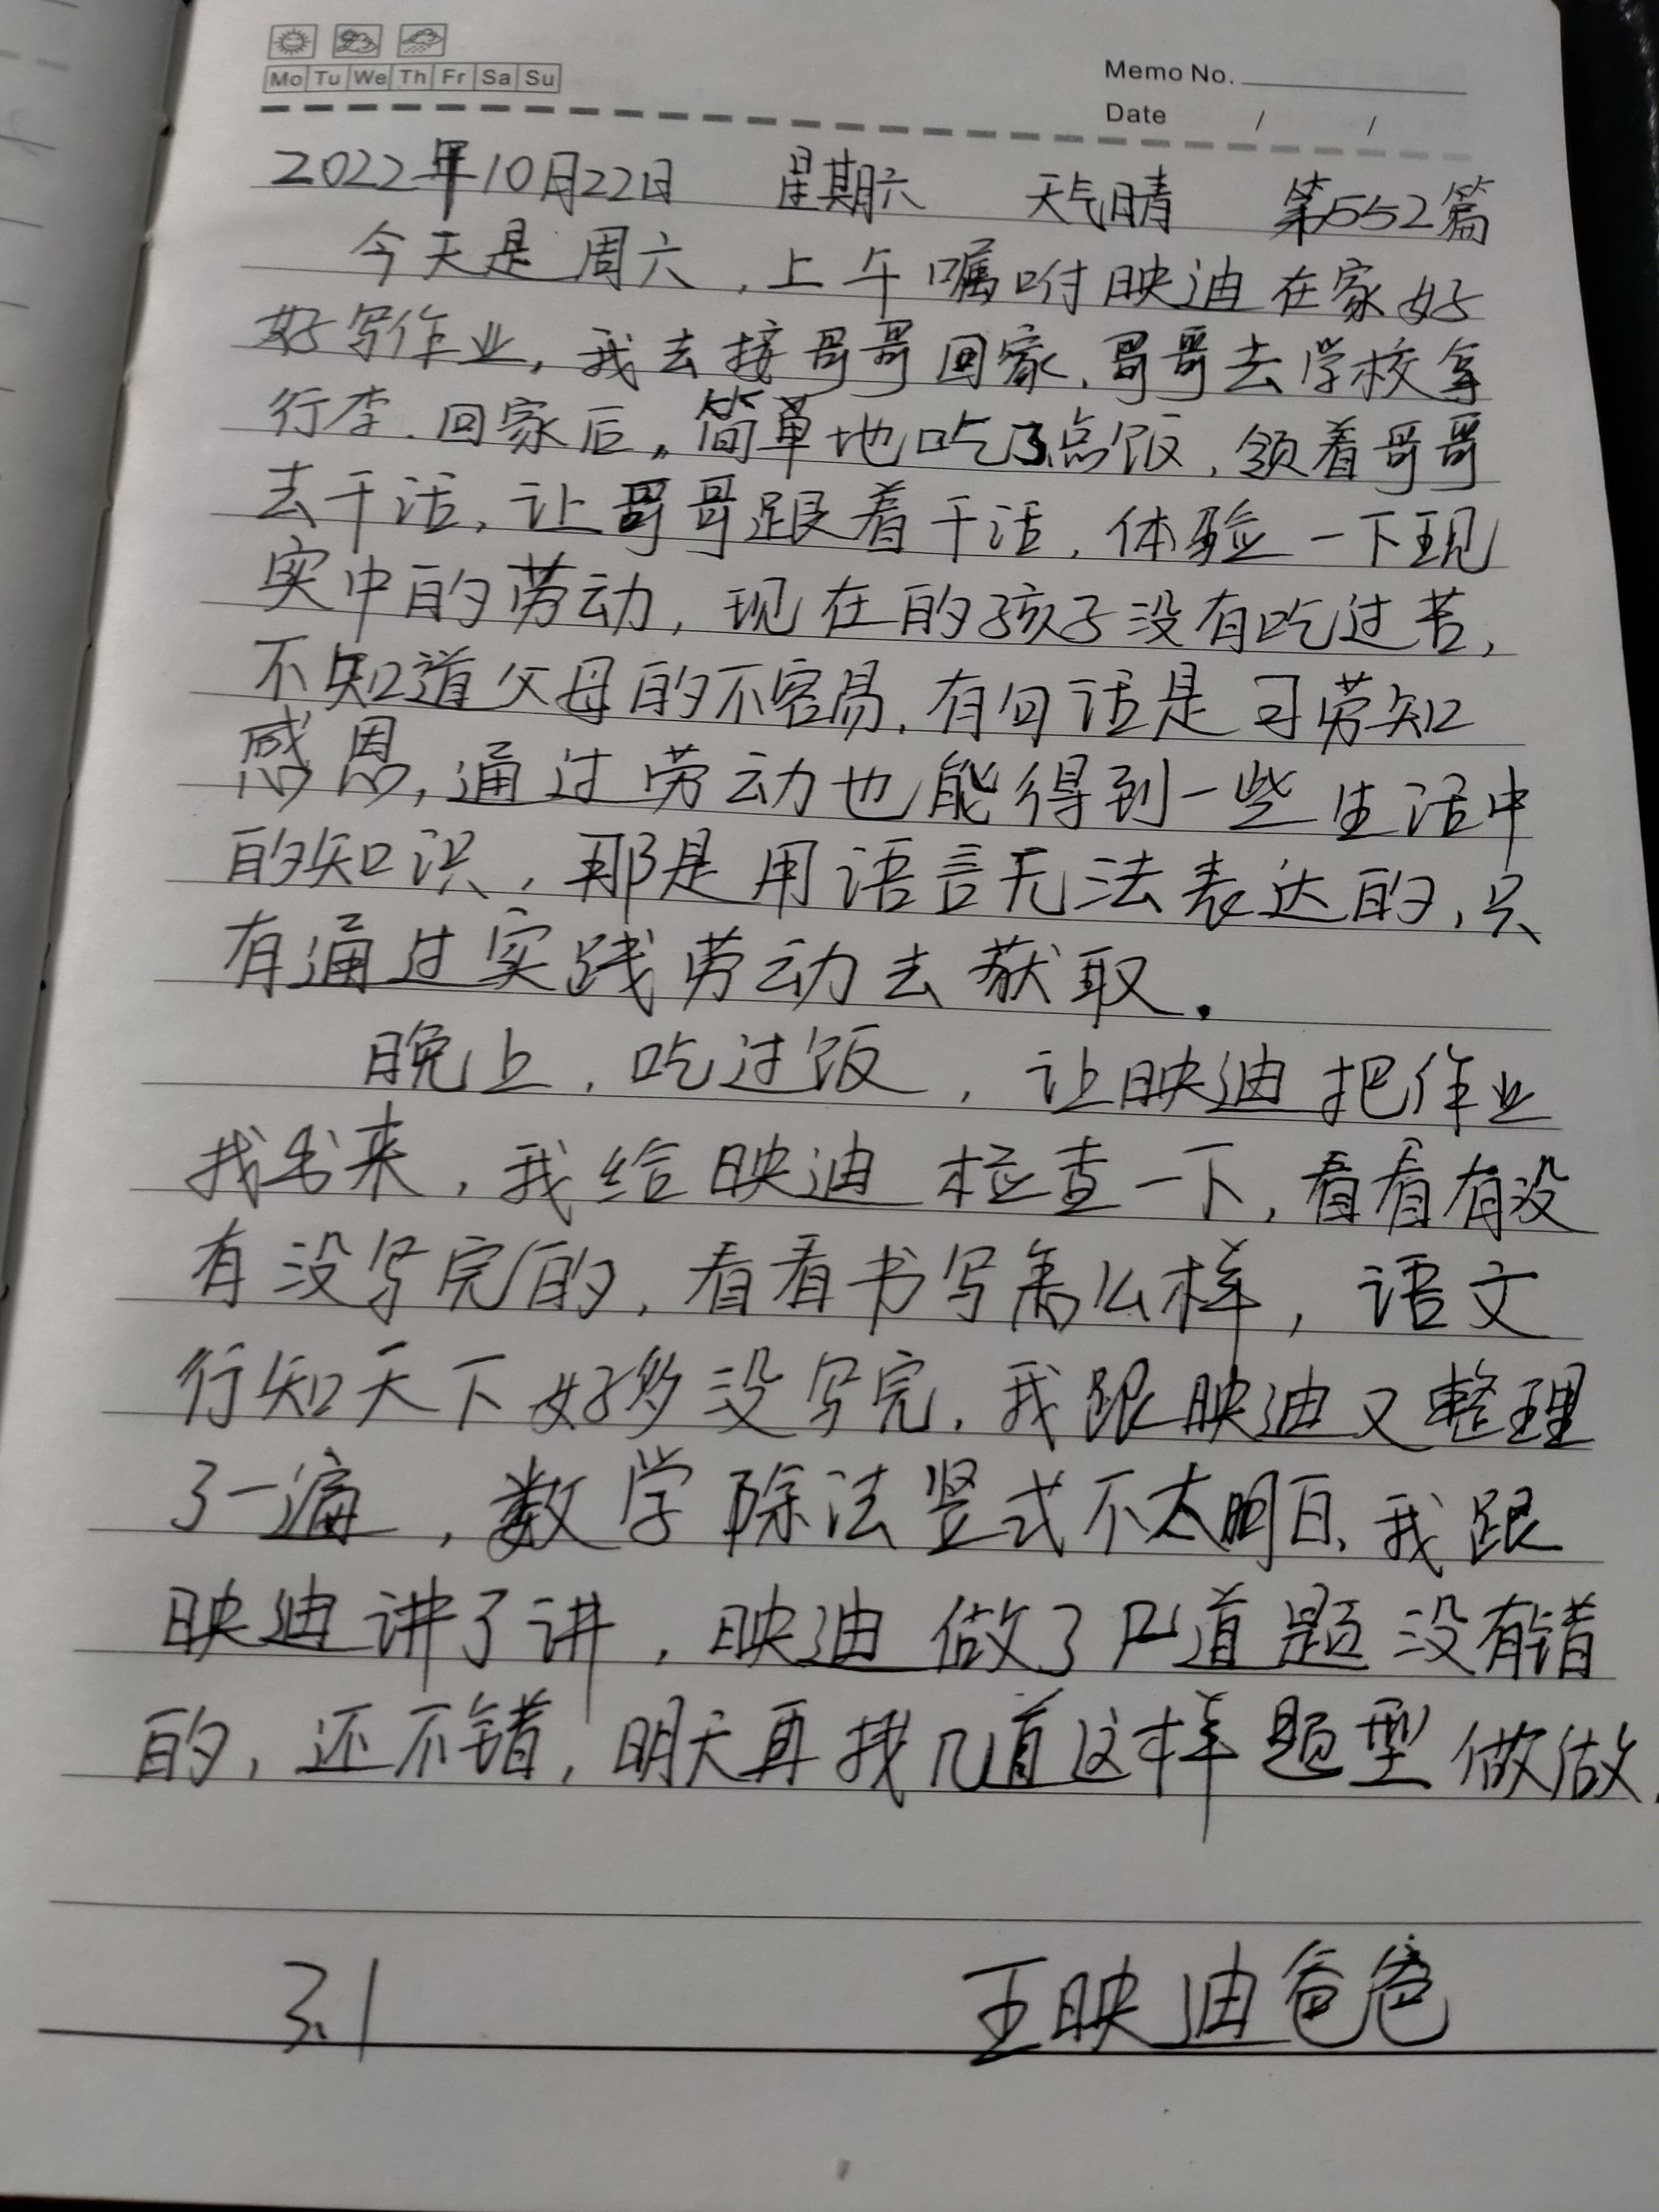 Mo Tu We Th Fr Sa Su
Memo No.
Date / /
2022年10月22日 星期六 天气晴 第552篇
今天是周六,上午嘱咐映迪在家好
好写作业,我去接哥哥回家,哥哥去学校拿
行李.回家后,简单地吃了点饭,领着哥哥
去干活,让哥哥跟着干活,体验一下现
实中的劳动,现在的孩子没有吃过苦,
不知道父母的不容易,有句话是习劳知
感恩,通过劳动也能得到一些生活中
的知识,那是用语言无法表达的,只
有通过实践劳动去获取.
晚上,吃过饭,让映迪把作业
找出来,我给映迪检查一下,看看有没
有没写完的,看看书写怎么样,语文
行知天下好多没写完,我跟映迪又整理
了一遍,数学除法竖式不太明白,我跟
映迪讲了讲,映迪做了几道题没有错
的,还不错,明天再找几道这样题型做做.
3.1 王映迪爸爸